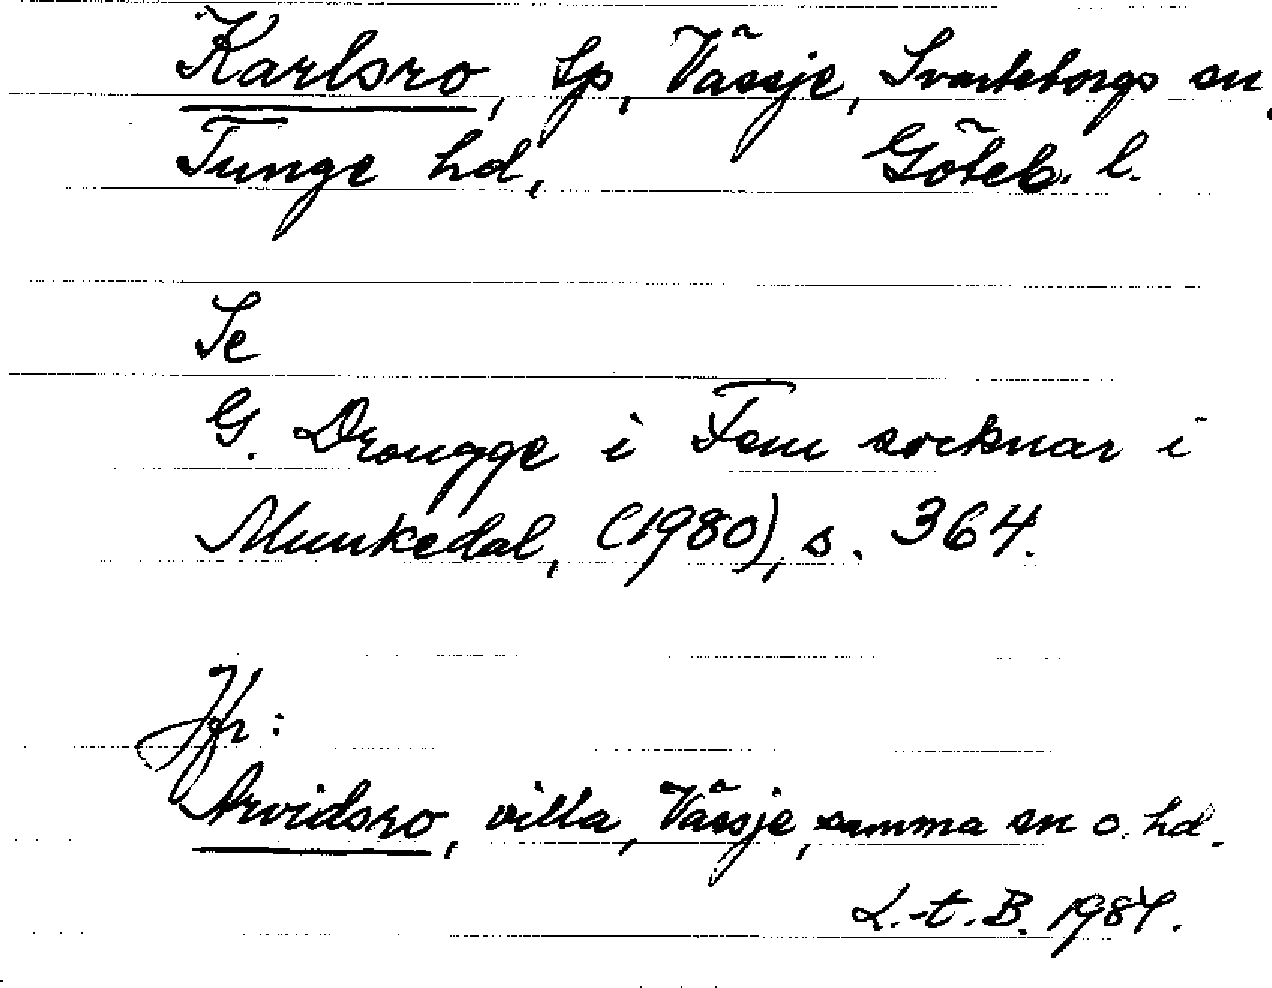 Karlsro, Lp, Vässje, Svarteborgs sn,
Tunge hd, Göteb. l.
Se
G. Drougge i Fem socknar i
Munkedal, (1980), s. 364.
Jfr:
Arvidsro, villa, Vässje, samma sn o. hd.
L.-t. B. 1984.